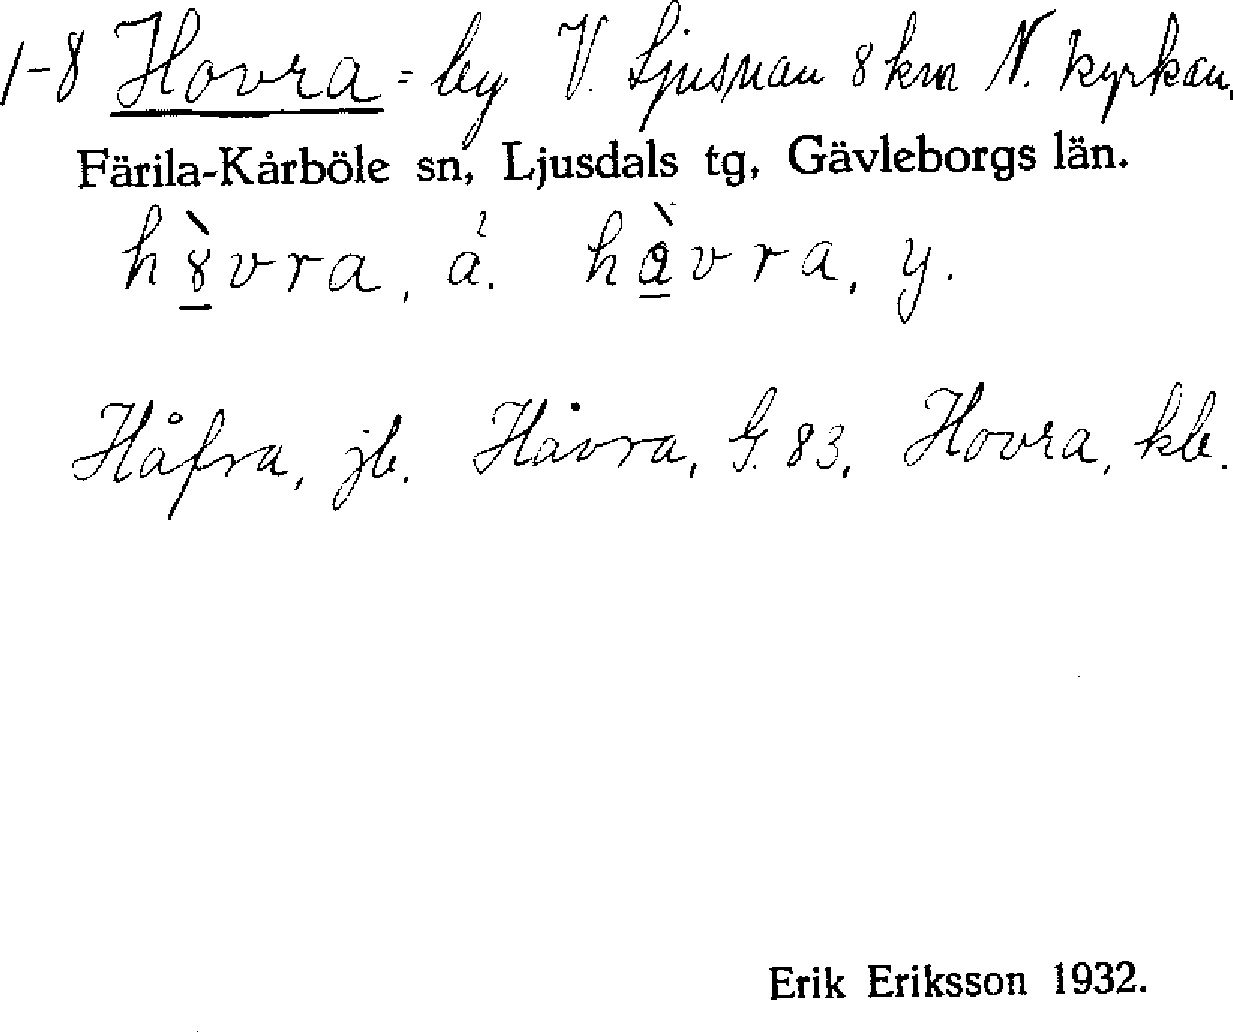 1-8 Hovra = by V. Ljusnan 8 km N. kyrkan,
Färila-Kårböle sn, Ljusdals tg, Gävleborgs län.
h8̀vra, ä. hàvra, y.
Håfra, jb. Håvra, G. 83, Hovra, kb.
Erik Eriksson 1932.